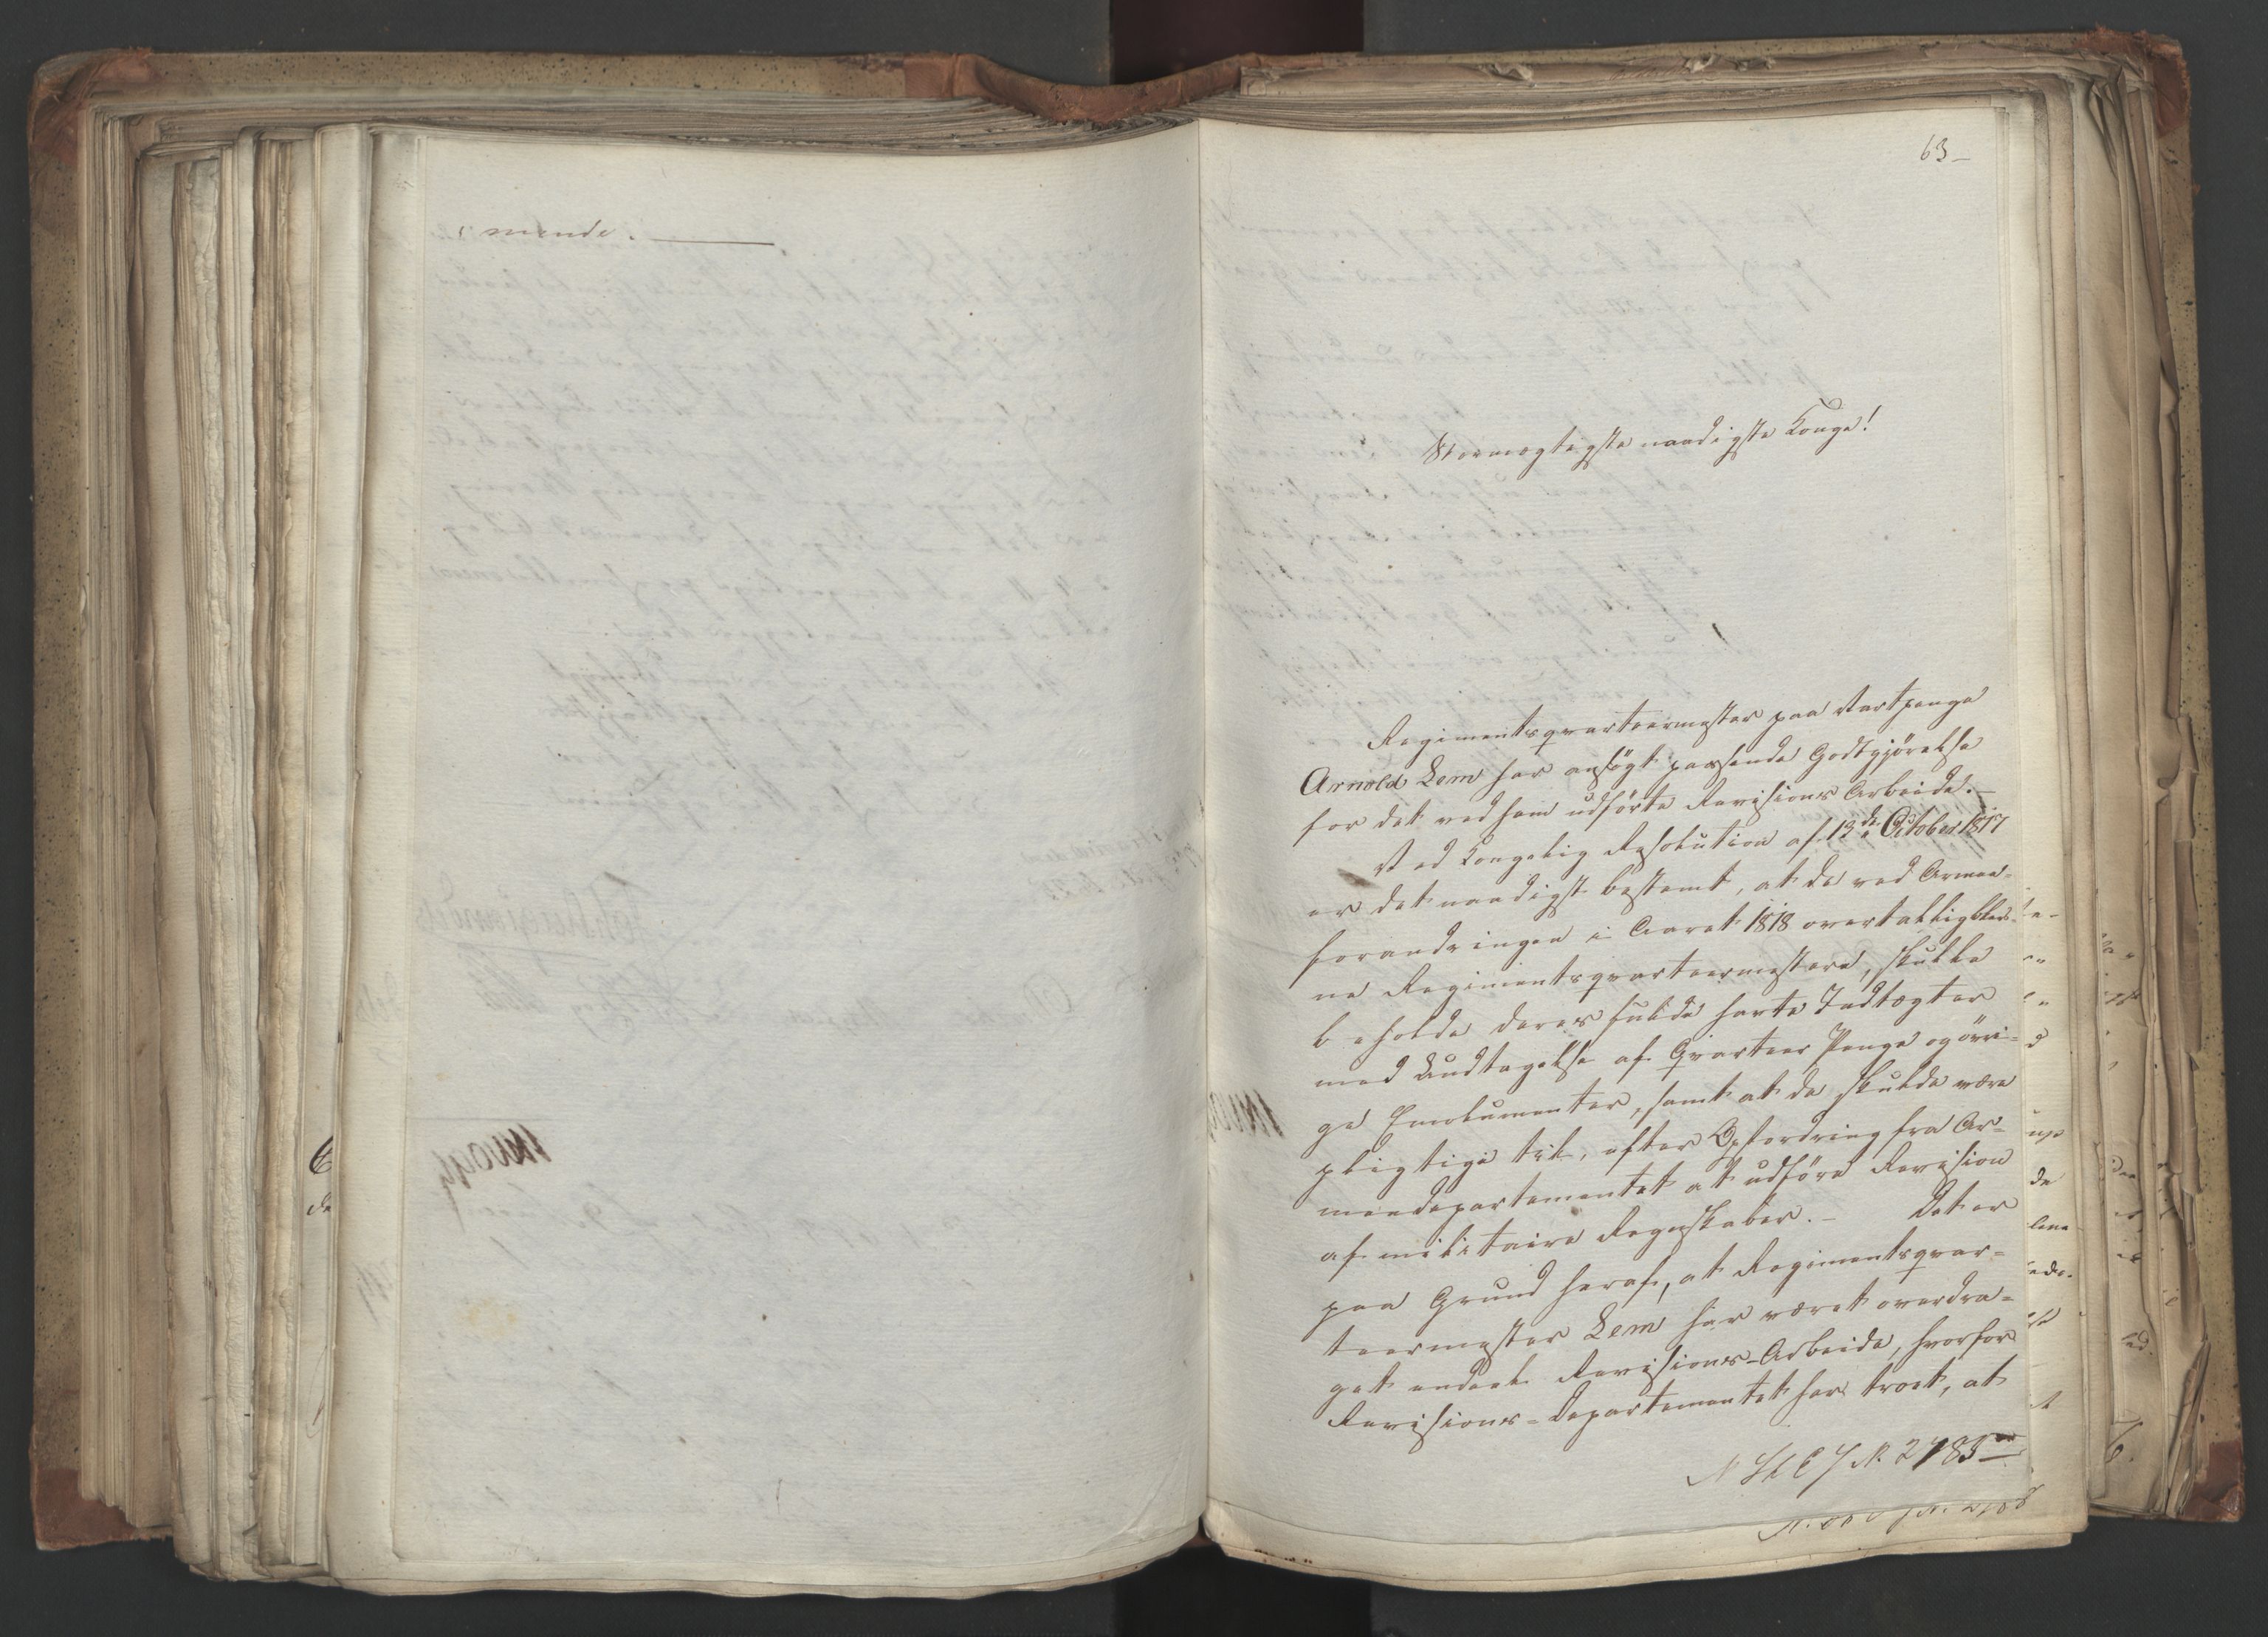 mende.
63
Stormægtigste naadigste Konge!
Regimentsqvarteermester paa Vartpenge
Arnold Lem har ansögt passende Godtgjörelse
for det ved ham udförte Revisions Arbeide. —
Ved Kongelig Resolution af 13de October 1817
er det naadigst bestemt, at de ved Armee-
forandringen i Aaret 1818 overtallig blev-
ne Regimentsqvarteermestere, skulle
beholde deres fulde havte Indtægter
med Undtagelse af Qvarteer Penge og övri-
ge Emolumenter, samt at de skulde være
pligtige til, efter Opfordring fra Ar-
meedepartementet at udföre Revision
af militaire Regnskaber. — Det er
paa Grund heraf, at Regimentsqvar-
teermester Lem har været overdra-
get endeel Revisions-Arbeide, hvorfor
Revisions-Departementet har troet, at